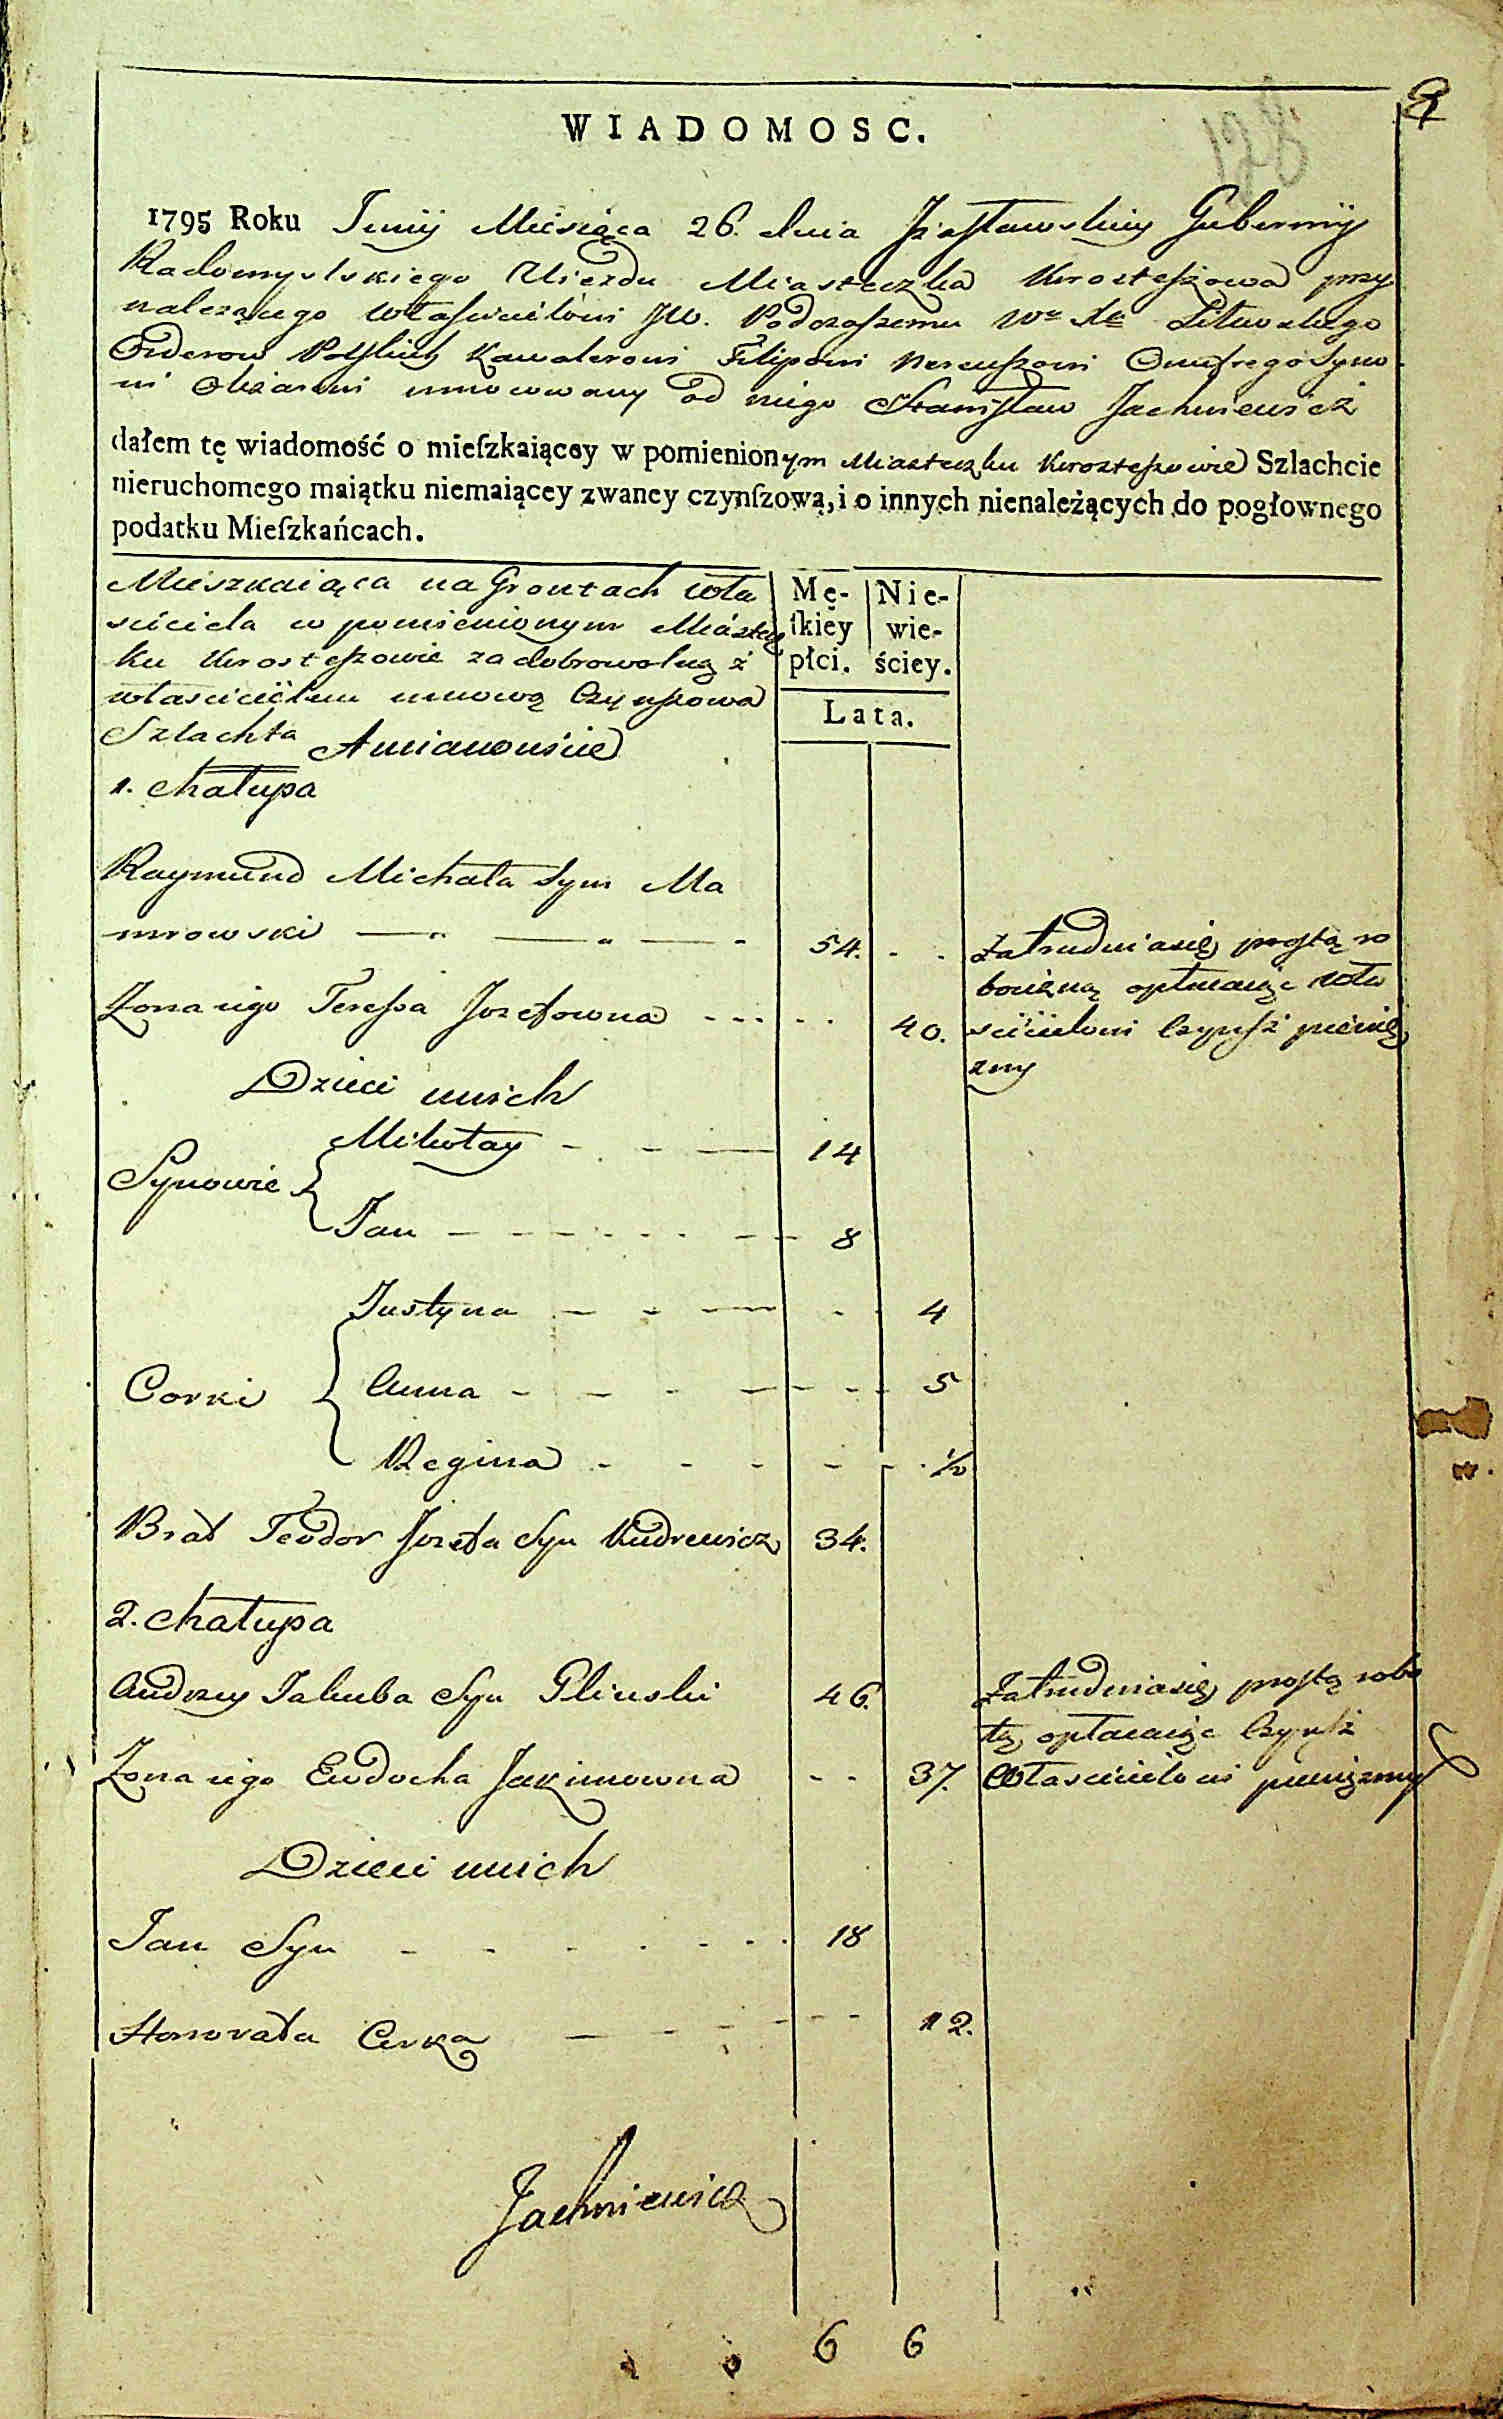 9
128
WIADOMOSC.
1795 Roku Junij Miesiąca 26. dnia Iziasławskiey Gubernij
Radomyslskiego Uiezdu Miasteczka Krosteszowa przy
należącego Włascicielowi JW. Podczaszemu Wo Xa Litewskiego
Orderow Polskich Kawalerowi Filipowi Onufrego Syno
wi Olizarowi umocowany od niego Stanisław Jachniewicz
dałem tę wiadomość o mieſzkaiącey w pomienionym Miasteczku Krosteszowie Szlachcie
nieruchomego maiątku niemaiącey zwaney czynſzową, i o innych nienależących do pogłownego
podatku Mieſzkańcach.
Mieszkaiąca na Grontach wła
sciciela w pomienionym Miastecz
ku Krosteszowie za dobrowolną z
włascicielem umową Czynszowa
Szlachta
Mę-
ſkiey
płci.
Nie-
wie-
ściey.
Lata.
1. Chałupa
Raymund Michała Syn Ma
mrowski — — — 54. - -
Zatrudnia się prostą ro
bocizną opłacaiąc wła
scicielowi Czynsz pienię
zny
Zona iego Teressa Jozefowna - - - - - 40.
Dzieci unich
Synowie { Mikołay - - — 14
Jan - - - - - - - 8
Corki { Justyna - - - - - 4
Anna - - - - - - - 5
Regina - - - - - - ½
Brat Teodor Jozefa Syn Kudrewicz 34.
2. Chałupa
Andrzey Jakuba Syn Glinski 46.
Zatrudnia się prostą robo
tą, opłacaiąc Czynsz
Włascicielowi pieniężny
Zona iego Eudocha Jakimowna - - 37.
Dzieci unich
Jan Syn - - - - - - - 18
Honorata Corka - - - - - - - 12.
Jachniewicz
6 6